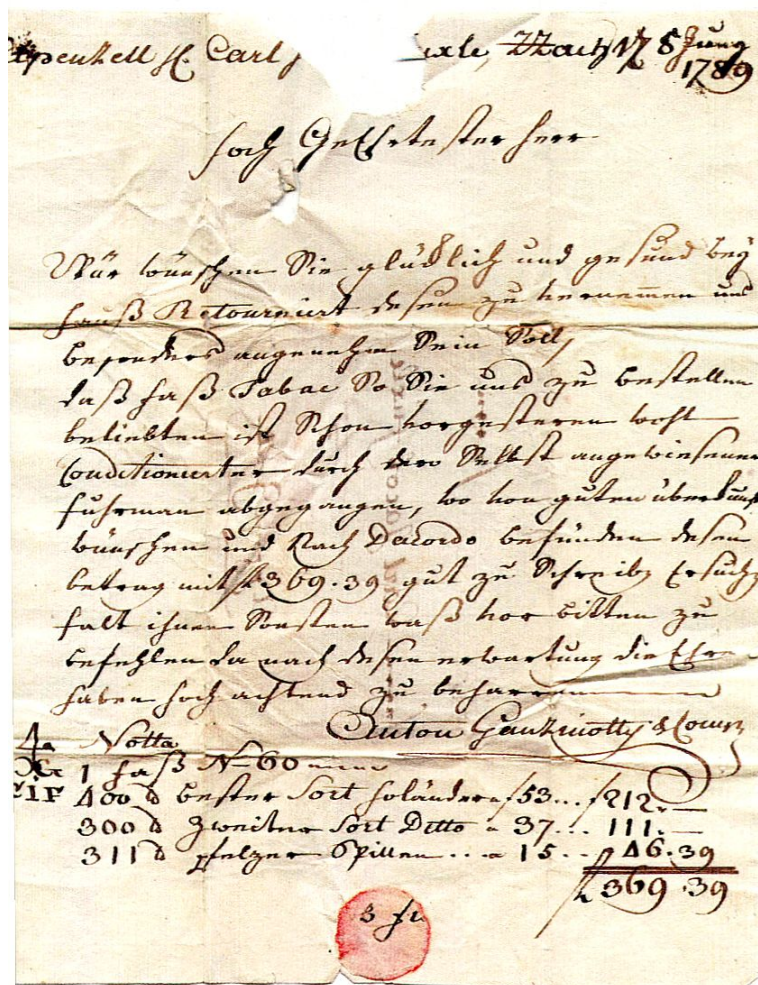 Carl
1789
Hoch Geehrtester Herr
Wür wünschen Sie glücklich und gesund bey
Hauß Retournürt desen zu vernemen uns
besonders angenehm Sein Soll,
daß faß Tabac So Sie uns zu bestellen
beliebten ist Schon vorgesteren wohl
Conditionierter durch dero Selbst angewiesenen
fuhrman abgegangen, wo von guten überkunft
wünschen und Nach Dacordo befünden desen
betrag mit f 369.39 gut zu Schreiben Ersuchen
falt ihnen Sonsten waß vor bitten zu
befehlen da nach desen erwartung die Ehre
haben hoch achtend zu beharren
Anton
Notta
1 faß N 60
CIF 400 d bester Sort holänder a f 53 … f 212. —
300 d Zweiter Sort Ditto a 37 … 111. —
311 d pfelzer Spillen … a 15 … 46.39
f 369.39
3